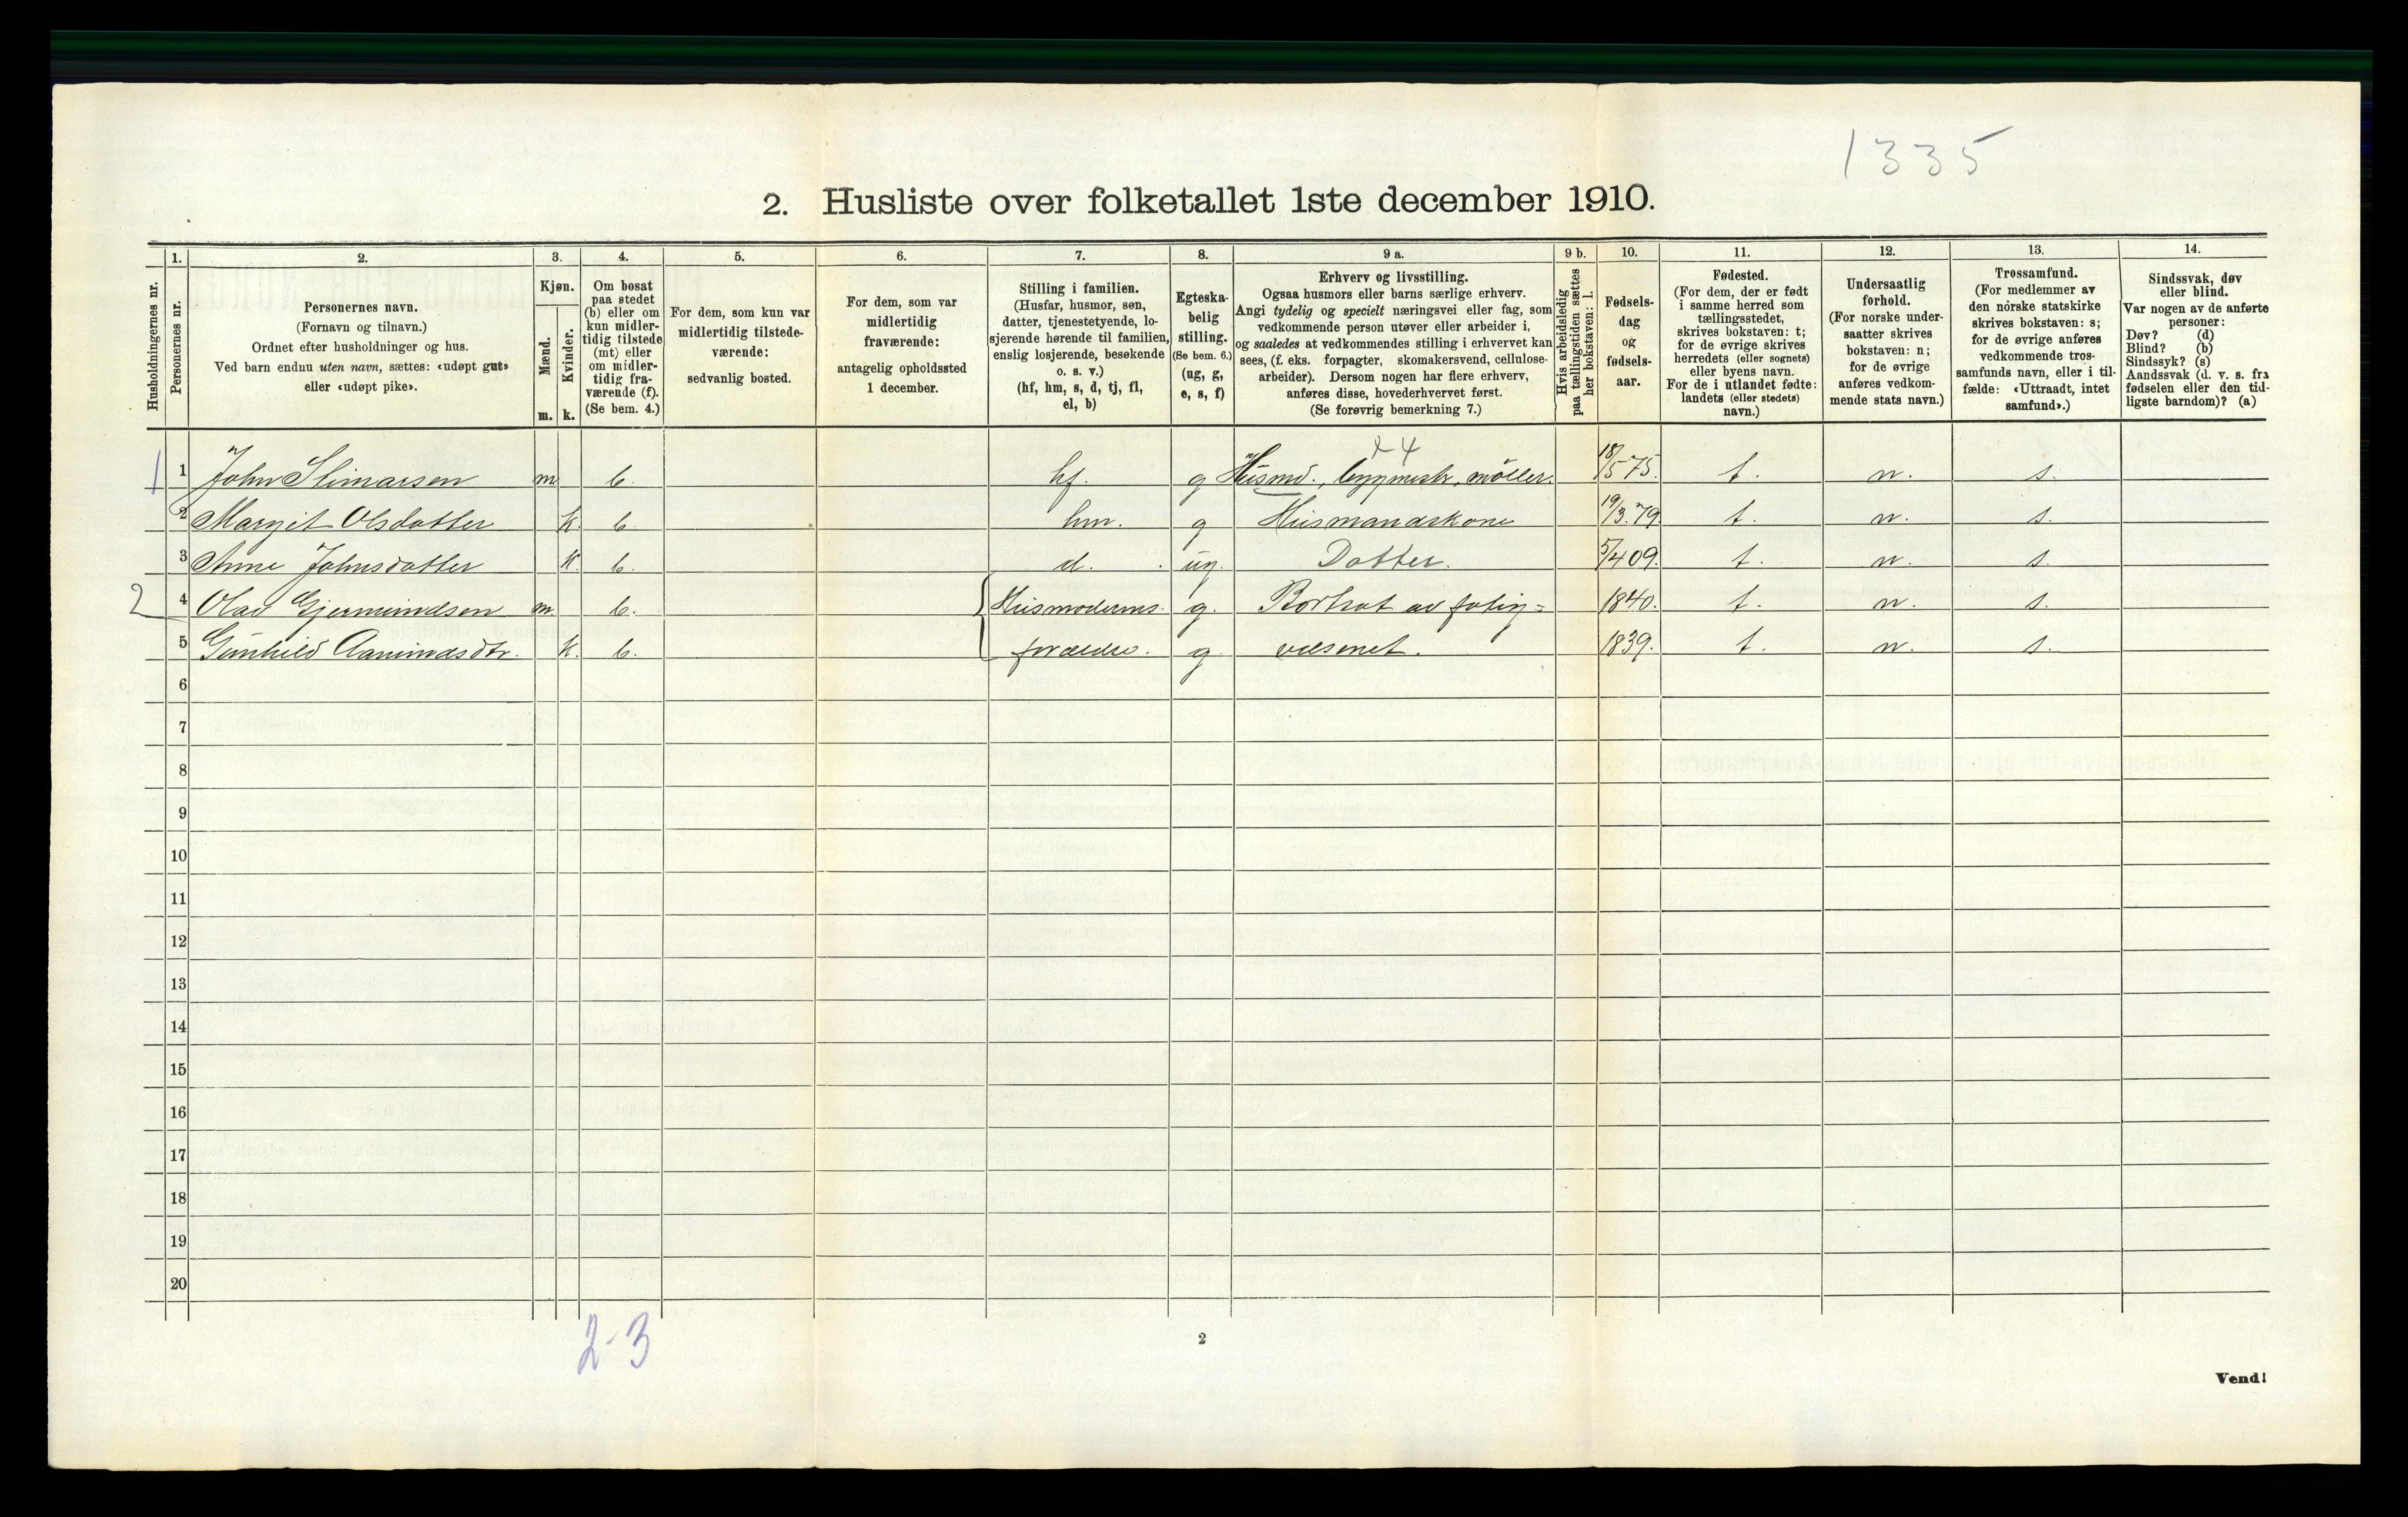 1335
2. Husliste over folketallet 1ste december 1910.
Husholdningernes nr.
1.
Personernes nr.
2.
Personernes navn.
(Fornavn og tilnavn.)
Ordnet efter husholdninger og hus.
Ved barn endnu uten navn, sættes: «udøpt gut»
eller «udøpt pike».
3.
Kjøn.
Mænd.
Kvinder.
m. k.
4.
Om bosat
paa stedet
(b) eller om
kun midler-
tidig tilstede
(mt) eller
om midler-
tidig fra-
værende (f).
(Se bem. 4.)
5.
For dem, som kun var
midlertidig tilstede-
værende:
sedvanlig bosted.
6.
For dem, som var
midlertidig
fraværende:
antagelig opholdssted
1 december.
7.
Stilling i familien.
(Husfar, husmor, søn,
datter, tjenestetyende, lo-
sjerende hørende til familien,
enslig losjerende, besøkende
o. s. v.)
(hf, hm, s, d, tj, fl,
el, b)
8.
Egteska-
belig
stilling.
(Se bem. 6.)
(ug, g,
e, s, f)
9 a.
Erhverv og livsstilling.
Ogsaa husmors eller barns særlige erhverv.
Angi tydelig og specielt næringsvei eller fag, som
vedkommende person utøver eller arbeider i,
og saaledes at vedkommendes stilling i erhvervet kan
sees, (f. eks. forpagter, skomakersvend, cellulose-
arbeider). Dersom nogen har flere erhverv,
anføres disse, hovederhvervet først.
(Se forøvrig bemerkning 7.)
9 b.
Hvis arbeidsledig
paa tællingstiden sættes
her bokstaven: l.
10.
Fødsels-
dag
og
fødsels-
aar.
11.
Fødested.
(For dem, der er født
i samme herred som
tællingsstedet,
skrives bokstaven: t;
for de øvrige skrives
herredets (eller sognets)
eller byens navn.
For de i utlandet fødte:
landets (eller stedets)
navn.)
12.
Undersaatlig
forhold.
(For norske under-
saatter skrives
bokstaven: n;
for de øvrige
anføres vedkom-
mende stats navn.)
13.
Trossamfund.
(For medlemmer av
den norske statskirke
skrives bokstaven: s;
for de øvrige anføres
vedkommende tros-
samfunds navn, eller i til-
fælde: «Uttraadt, intet
samfund».)
14.
Sindssvak, døv
eller blind.
Var nogen av de anførte
personer:
Døv? (d)
Blind? (b)
Sindssyk? (s)
Aandssvak (d. v. s. fra
fødselen eller den tid-
ligste barndom)? (a)
1 1 John m b. hf. g Husmd., møller. 18/5 75. t. n. s.
2 Margit Olsdatter k. b. hm. g Husmandskone 19/3.79. t. n. s.
3 Anne Johnsdatter k. b. d. ug. Datter. 5/4 09. t. n. s.
2 4 Olav Gjermundsen m b. Husmoderens g. Bortsat av fatig= 1840. t. n. s.
5 Gunhild Aamundsdtr. k. b. forældre. g væsenet. 1839. t. n. s.
6
7
8
9
10
11
12
13
14
15
16
17
18
19
20
2-3
2
Vend!